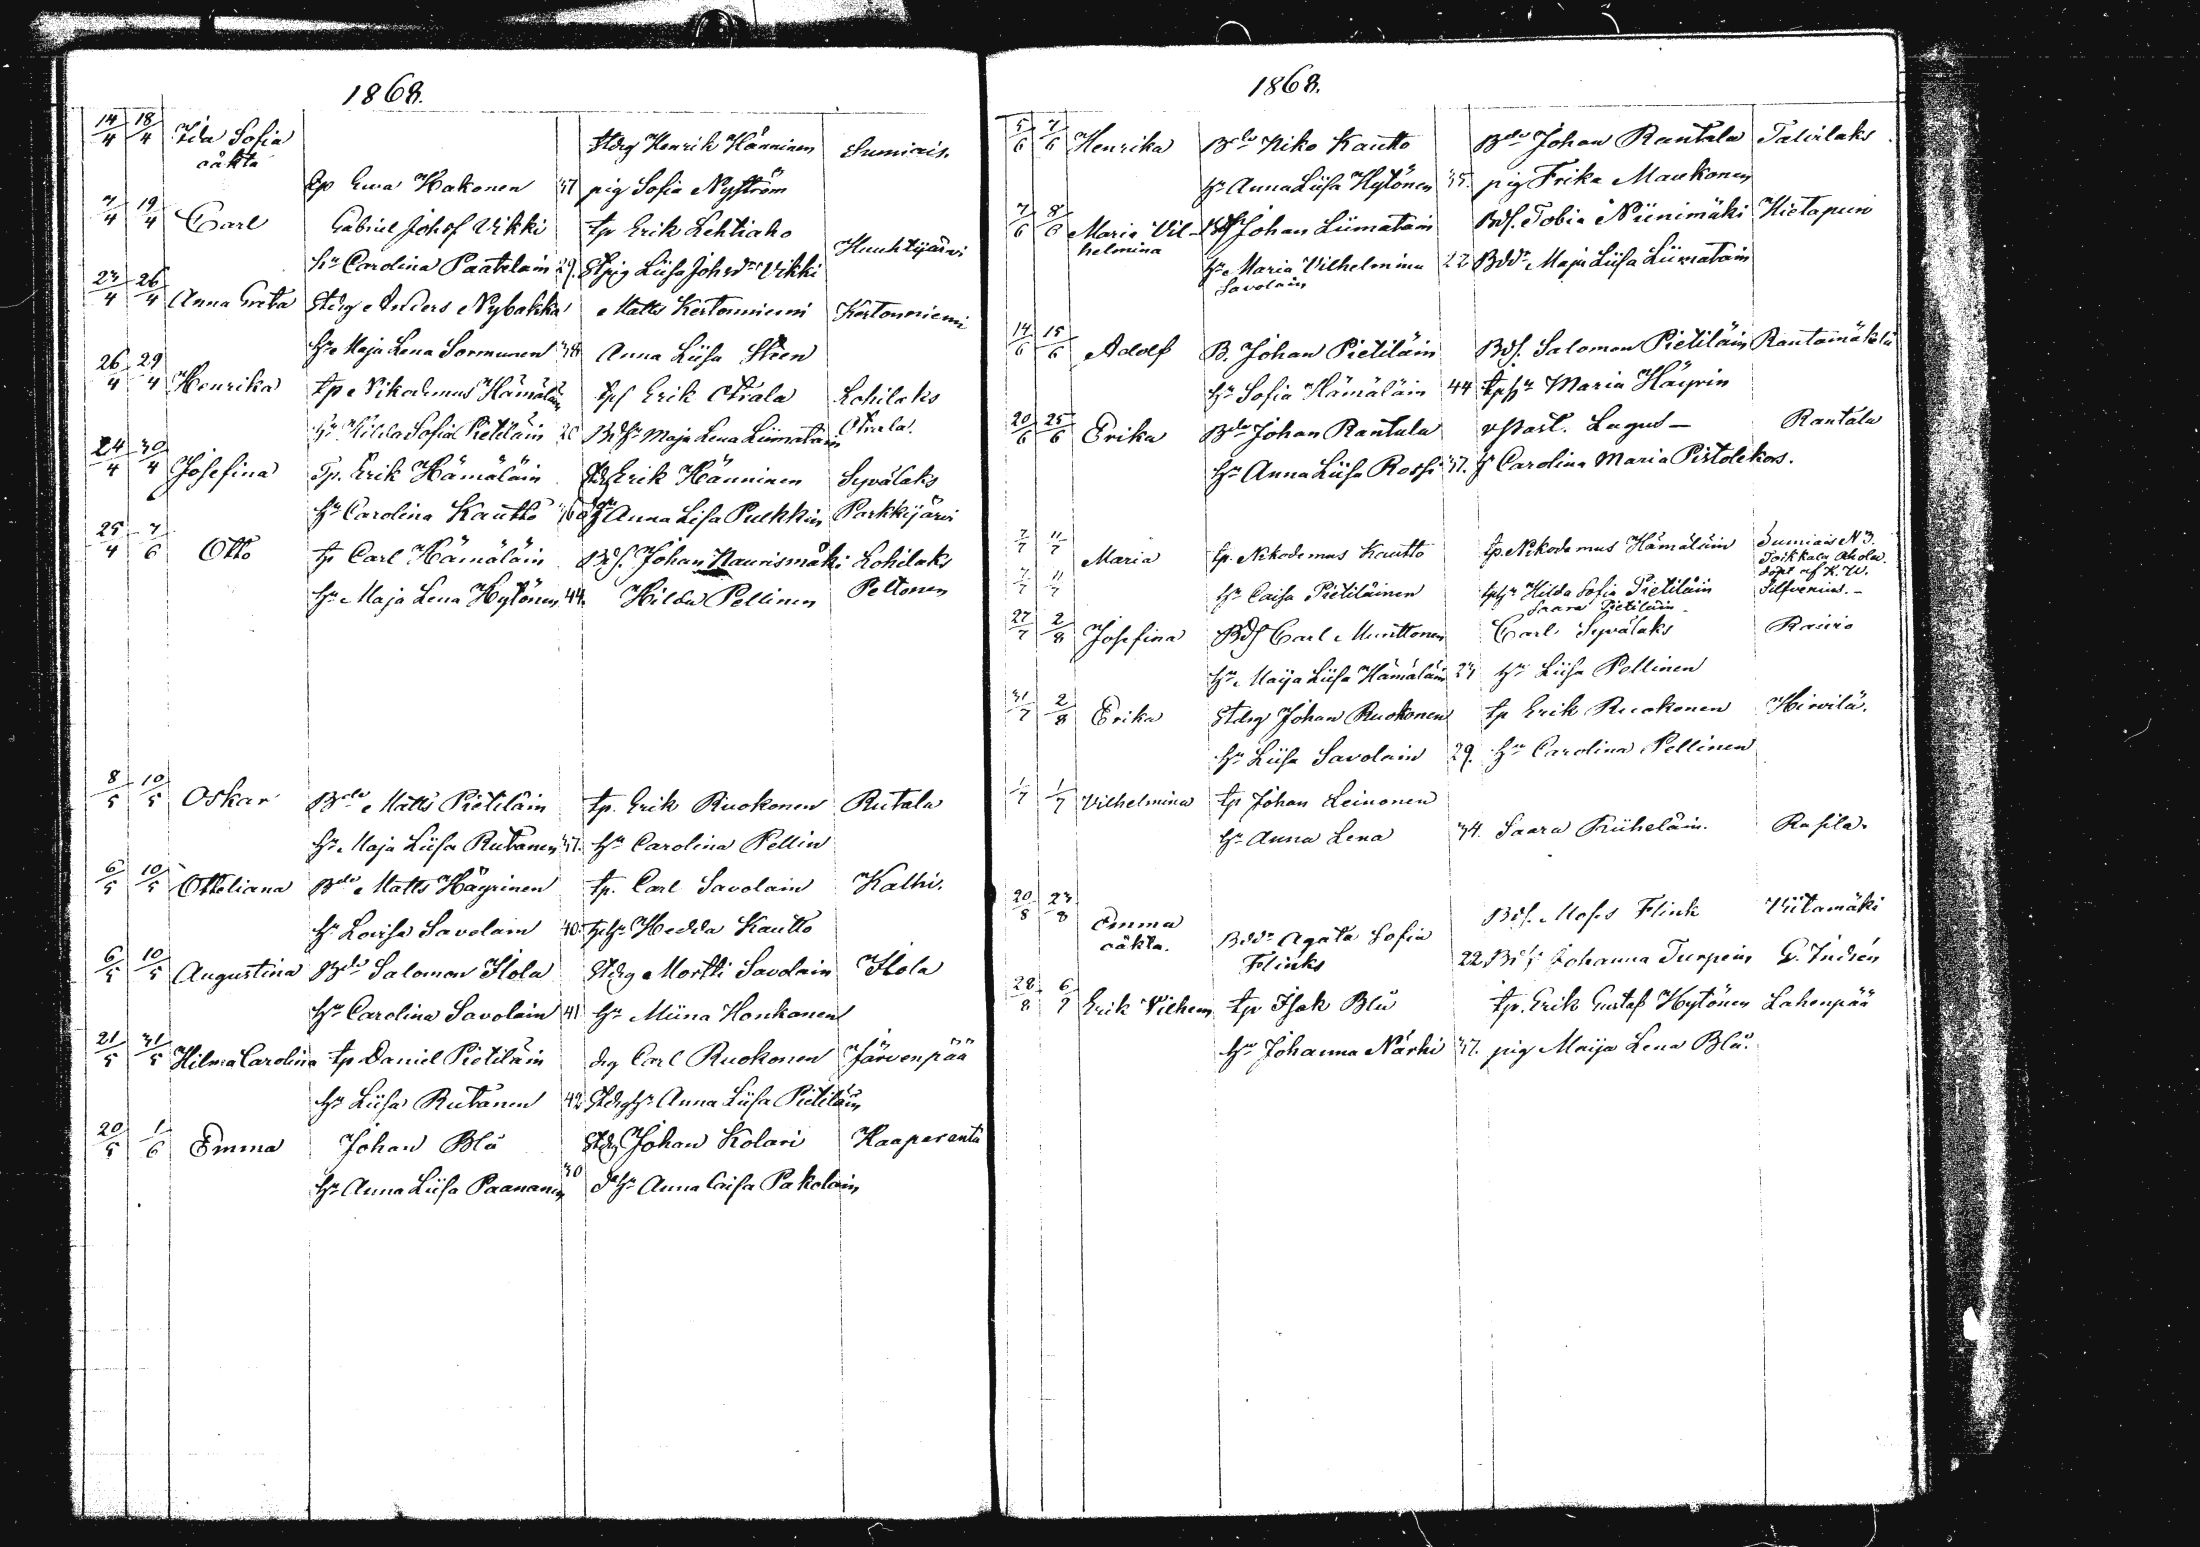 1868.
14/4 18/4 Ida Sofia Stdrg Henrik Hänninen Sumiais
oäkta
tp Ewa Hakonen 37 pig Sofia Nyström
7/4 19/4 Carl Gabriel Johsf Vikki tp Erik Lehtiaho Huuhtijärvi
hr Carolina Paatelain 29. Stpig Liisa Johsdr Vikki
23/4 26/4 Anna Greta Stdrg Anders Nybakka Matts Kertonniemi Kertonniemi
Hr Maja Lena Sormunen 38 Anna Liisa Steen
26/4 29/4 Henrika tp Nikodemus Hämäläin tpf Erik Ahala Lohilaks
Hr Hilda Sofia Pietiläin 26 Maja Lena Liimatain
24/4 30/4 Josefina Tp. Erik Hämäläin Erik Hänninen Syvälaks
Hr Carolina Kautto 36 Anna Lisa Pulkkin Parkkijärvi
25/4 7/6 Otto tp Carl Hämäläin Bdf. Johan Naurismäki Lohilaks
Hr Maja Lena Hytönen 44. Hilda Pellinen Peltonen
8/5 10/5 Oskar Bde Matts Pietiläin tp. Erik Ruokonen Rutala
Hr Maja Liisa Rutanen 37. Hr Carolina Pellin
6/5 10/5 Otteliana Bde Matts Häyrinen tp. Carl Savolain Kalhi.
Hr Lovisa Savolain 40. tphr Hedda Kautto
6/5 10/5 Augustina Bde Salomon Ilola Stdrg Mortti Savolain Ilola
Hr Carolina Savolain 41 Hr Miina Honkonen
21/5 31/5 Hilma Carolina tp Daniel Pietiläin drg Carl Ruokonen Järvenpää
Hr Liisa Rutanen 42 Stdrghr Anna Liisa Pietiläin
20/5 1/6 Emma Johan Blå Stdrg Johan Kolari Haaparanta
Hr Anna Liisa Paananen 30 Anna Caisa Pakolain
1868.
5/6 7/6 Henrika Bde Niko Kautto Bde Johan Rantala Talvilaks
Hr Anna Liisa Hytönen 35. pig Frika Maukonen
7/6 8/6 Maria Vil- Johan Liimatain Bdf. Tobia Niinimäki Hietapuro
helmina Hr Maria Vilhelmina 22 Bddr Maja Liisa Liimatain
Savolain
14/6 15/6 Adolf B. Johan Pietiläin Bdf. Salomon Pietiläin Rantamäkelä
Hr Sofia Hämäläin 44 tphr Maria Häyrin
20/6 25/6 Erika Bde Johan Rantala vPast. Lagus — Rantala
Hr Anna Liisa Rossi 37. Fr Carolina Maria Pistolekors.
7/7 11/7 Maria tp. Nikodemus Kautto tp. Nikodemus Hämäläin Sumiais N 3.
Toikkala Ahola.
döpt af K. W.
7/7 11/7 Hr Caisa Pietiläinen tphr Hilda Sofia Pietiläin Silfvenius. —
Saara Pietiläin
27/7 2/8 Josefina Bdf Carl Minttonen Carl Syvälaks Raivio
Hr Maija Liisa Hämäläin 23 Hr Liisa Pollinen
31/7 2/8 Erika Stdrg Johan Ruokonen tp Erik Ruokonen Hirvilä.
Hr Liisa Savolain 29. Hr Carolina Pellinen
1/7 1/7 Vilhelmina tp Johan Leinonen
Hr Anna Lena 34. Saara Riiheläin. Rasila.
20/8 23/8 Emma Bdf. Moses Flink Viitamäki
oäkta. Bddr Agata Sofia 22 Johanna Turpein G. Indrén
Flinks
28/8 6/9 Erik Vilhem tp Isak Blå tp. Erik Gustaf Hytönen Lahenpää
Hr Johanna Närhi 37. pig Maija Lena Blå.